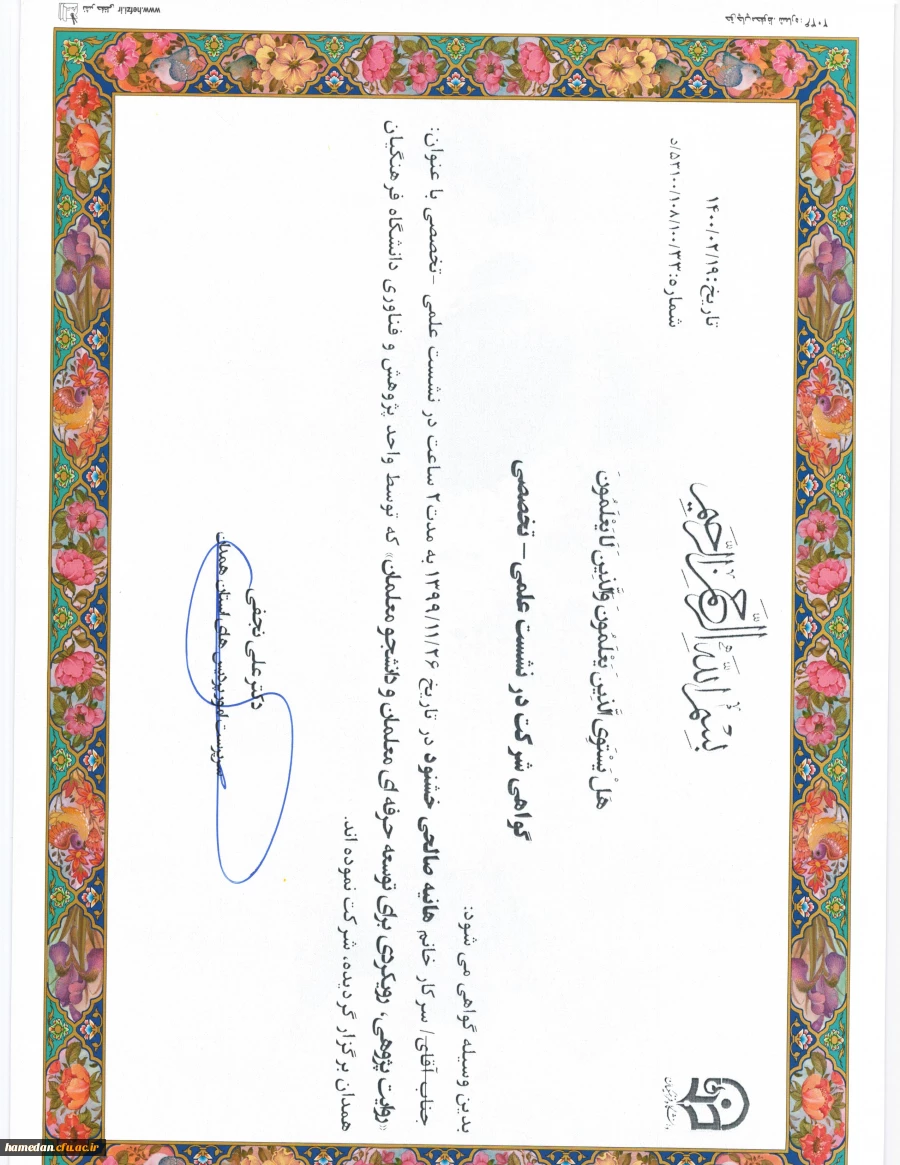 بسم الله الرحمن الرحیم
تاریخ: ۱۴۰۰/۰۲/۱۹
شماره: ۵۳۱۰۰/۱۰۸/۱۰۰/۳۳/د
دانشگاه فرهنگیان
هَلْ یَسْتَوِی الَّذِینَ یَعْلَمُونَ وَالَّذِینَ لَا یَعْلَمُونَ
گواهی شرکت در نشست علمی – تخصصی
بدین وسیله گواهی می شود:
جناب آقای/ سرکار خانم هانیه صالحی خشنود در تاریخ ۱۳۹۹/۱۱/۲۶ به مدت ۲ ساعت در نشست علمی -تخصصی با عنوان:
«روایت پژوهی، رویکردی برای توسعه حرفه ای معلمان و دانشجو معلمان» که توسط واحد پژوهش و فناوری دانشگاه فرهنگیان
همدان برگزار گردیده، شرکت نموده اند.
دکتر علی نجفی
سرپرست امور پردیس های استان همدان
www.hefzi.ir
hamedan.cfu.ac.ir